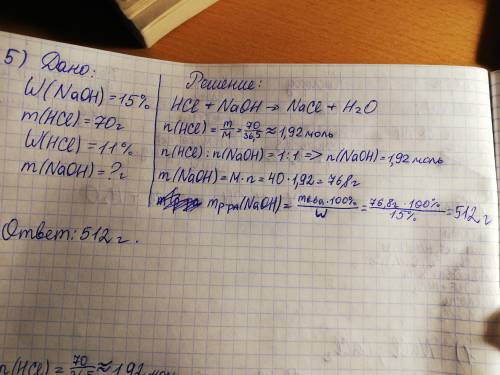 5) Дано:
W(NaOH)=15%
m(HCl)=70г
W(HCl)=11%
m(NaOH)=?г
Решение:
HCl + NaOH → NaCl + H₂O
n(HCl)=m/M=70/36,5≈1,92 моль
n(HCl):n(NaOH)=1:1 => n(NaOH)=1,92 моль
m(NaOH)=M·n=40·1,92=76,8г
mр-ра(NaOH)=mв-ва·100%/W=76,8г·100%/15%=512г
Ответ: 512 г.
n(HCl)=70/36,5≈1,92 мол